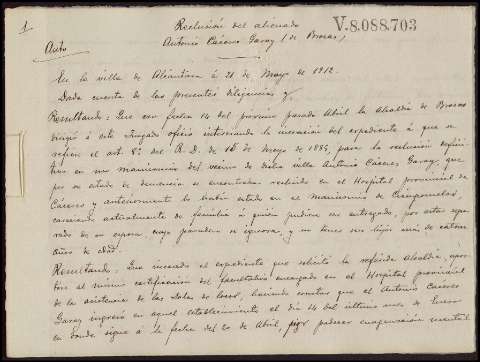 1
Reclusión del alienado
V.8.088.703
Auto
Antonio Cáceres Garay (de Brozas)
En la villa de Alcántara á 21 de Mayo de 1912.
Dada cuenta de las presentes diligencias y
Resultando: Que con fecha 14 del próximo pasado Abril la Alcaldía de Brozas
dirigió á este Juzgado oficio interesando la incoación del expediente á que se
refiere el art. 8º del R.D. de 19 de Mayo de 1885, para la reclusión defini-
tiva en un manicomio del vecino de dicha villa Antonio Cáceres Garay, que
por su estado de demencia se encontraba recluido en el Hospital provincial de
Cáceres y anteriormente lo había estado en el Manicomio de Ciempozuelos,
careciendo actualmente de familia á quien pudiera ser entregado, por estar sepa-
rado de su esposa, cuyo paradero se ignora, y no tener más hijos que de catorce
años de edad.
Resultando: Que incoado el expediente que solicitó la referida Alcaldía, apor-
tóse al mismo certificación del facultativo encargado en el Hospital provincial
de la asistencia de las Salas de locos, haciendo constar que el Antonio Cáceres
Garay ingresó en aquel establecimiento el día 14 del último mes de Enero
en donde sigue á la fecha del 20 de Abril, por padecer enagenación mental